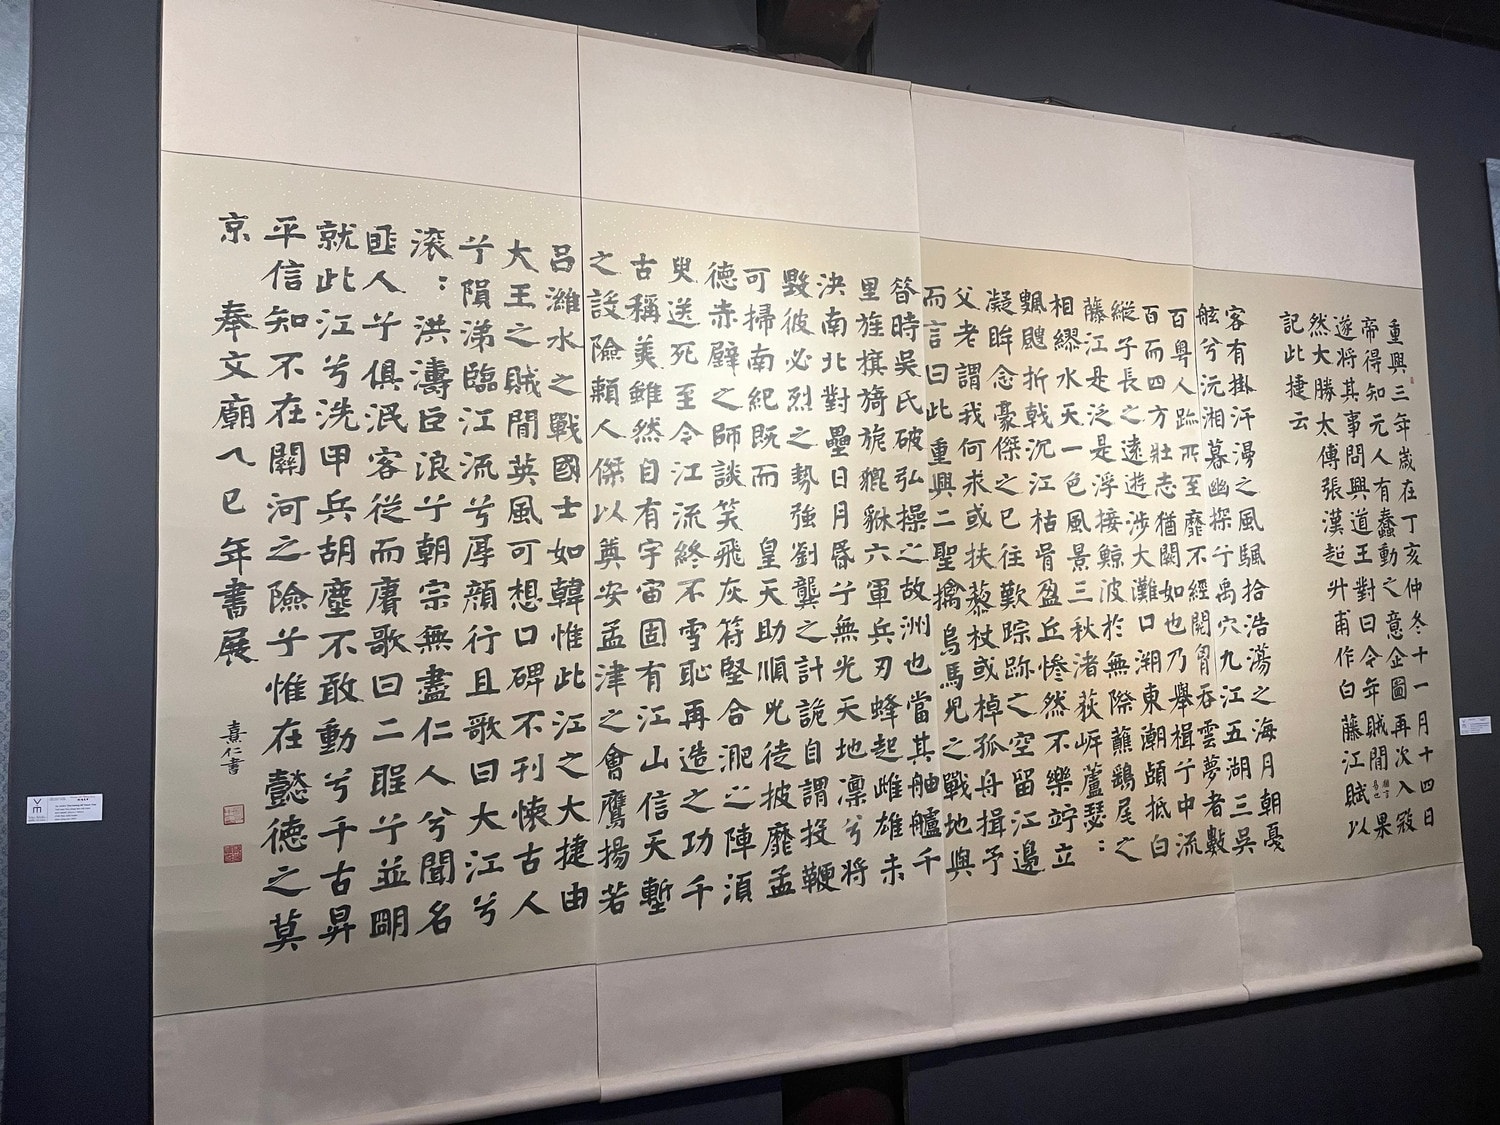 重興三年歲在丁亥仲冬十一月十四日
帝得知元人有蠢動之意企圖再次入寇
遂將其事問興道王對曰今年賊閒 言易也 果
然大勝太傅張漢超升甫作白藤江賦以
記此捷云
客有掛汗漫之風颿拾浩蕩之海月朝戛
舷兮沅湘暮幽探兮禹穴九江五湖三吳
百粵人跡所至靡不經閱胷吞雲夢者數
百而四方壯志猶闕如也乃舉楫兮中流
縱子長之遠遊涉大灘口溯東潮頭抵白
藤江是泛是浮接鯨波於無際蘸鷁尾之
相繆水天一色風景三秋渚荻岸蘆瑟:
颼飀折戟沉江枯骨盈丘慘然不樂竚立
凝眸念豪傑之已往歎踪跡之空留江邊
父老謂我何求或扶藜杖或棹孤舟揖予
而言曰此重興二聖擒烏馬兒之戰地與
昝時吳氏破弘操之故洲也當其舳艫千
里旌旗旖旎貔貅六軍兵刃蜂起雌雄未
決南北對壘日月昏兮無光天地凛兮將
毀彼必烈之勢強劉龔之計詭自謂投鞭
可掃南紀既而 皇天助順兇徒披靡孟
德赤壁之師談笑飛灰苻堅合淝之陣須
臾送死至今江流終不雪恥再造之功千
古稱羙雖然自有宇宙固有江山信天塹
之設險賴人傑以奠安孟津之會鷹揚若
呂濰水之戰國士如韓惟此江之大捷由
大王之賊閒英風可想口碑不刊懷古人
兮隕涕臨江流兮厚顏行且歌曰大江兮
滾:洪濤巨浪兮朝宗無盡仁人兮聞名
匪人兮俱泯客從而賡歌曰二聖兮並明
就此江兮洗甲兵胡塵不敢動兮千古昇
平信知不在關河之險兮惟在懿德之莫
京 奉文廟乁巳年書展 喜仁書